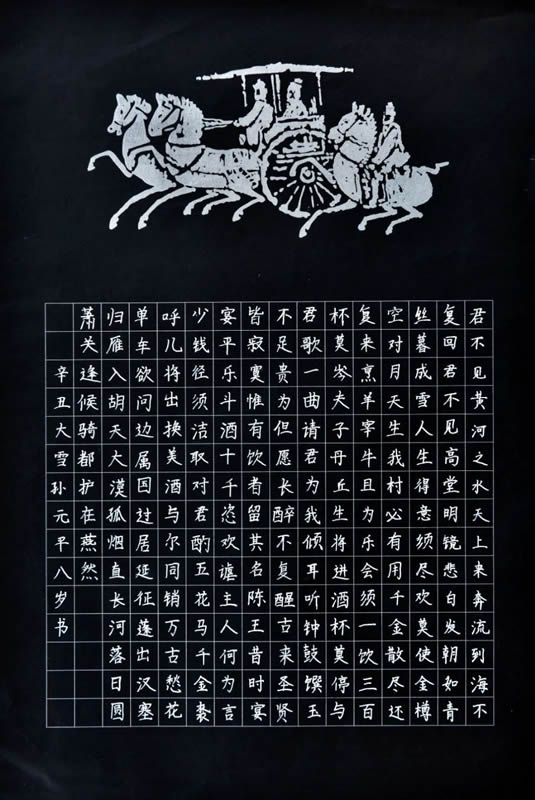 君不见黄河之水天上来奔流到海不
复回君不见高堂明镜悲白发朝如青
丝暮成雪人生得意须尽欢莫使金樽
空对月天生我村必有用千金散尽还
复来烹羊宰牛且为乐会须一饮三百
杯莫岑夫子丹丘生将进酒杯莫停与
君歌一曲请君为我倾耳听钟鼓馔玉
不足贵为但愿长醉不复醒古来圣贤
皆寂寞惟有饮者留其名陈王昔时宴
宴平乐斗酒十千恣欢谑主人何为言
少钱径须洁取对君酌五花马千金裘
呼儿将出换美酒与尔同销万古愁花
单车欲问边属国过居延征蓬出汉塞
归雁入胡天大漠孤烟直长河落日圆
萧关逢候骑都护在燕然
辛丑大雪孙元平八岁书